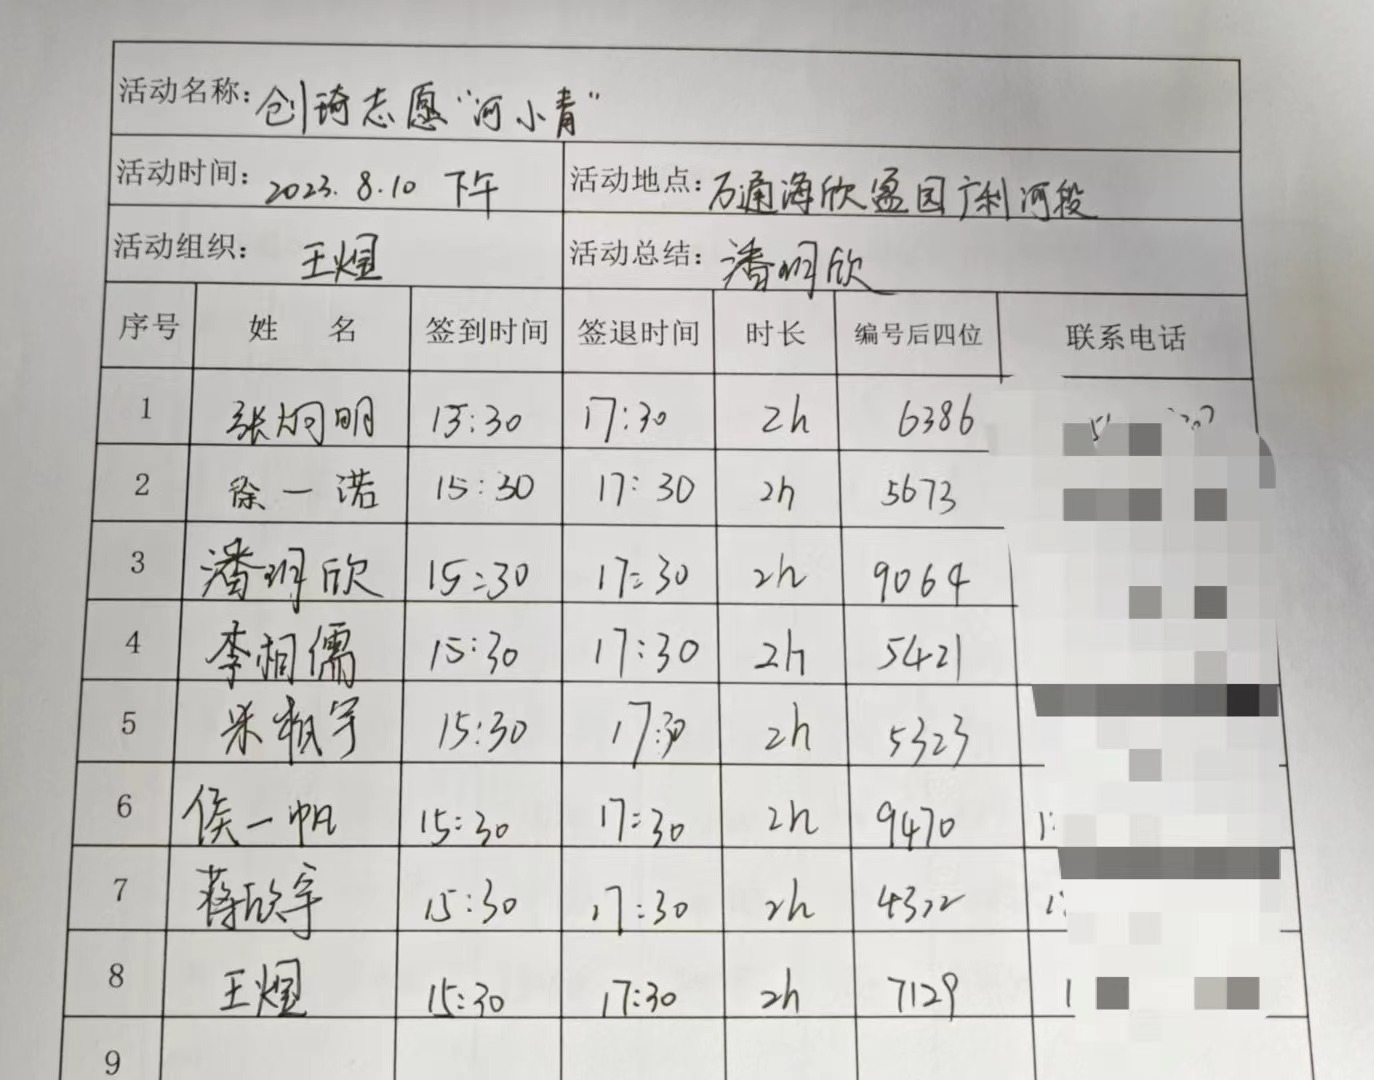 活动名称：创琦志愿“河小青”
活动时间：2023.8.10 下午 活动地点：万通海欣盈园广利河段
活动组织：王煊 活动总结：潘玥欣
序号 姓 名 签到时间 签退时间 时长 编号后四位 联系电话
1 张炯明 15:30 17:30 2h 6386
2 徐一诺 15:30 17:30 2h 5673
3 潘玥欣 15:30 17:30 2h 9064
4 李桐儒 15:30 17:30 2h 5421
5 15:30 17:30 2h 5323
6 侯一帆 15:30 17:30 2h 9470
7 蒋欣宇 15:30 17:30 2h 4322
8 王煊 15:30 17:30 2h 7129
9